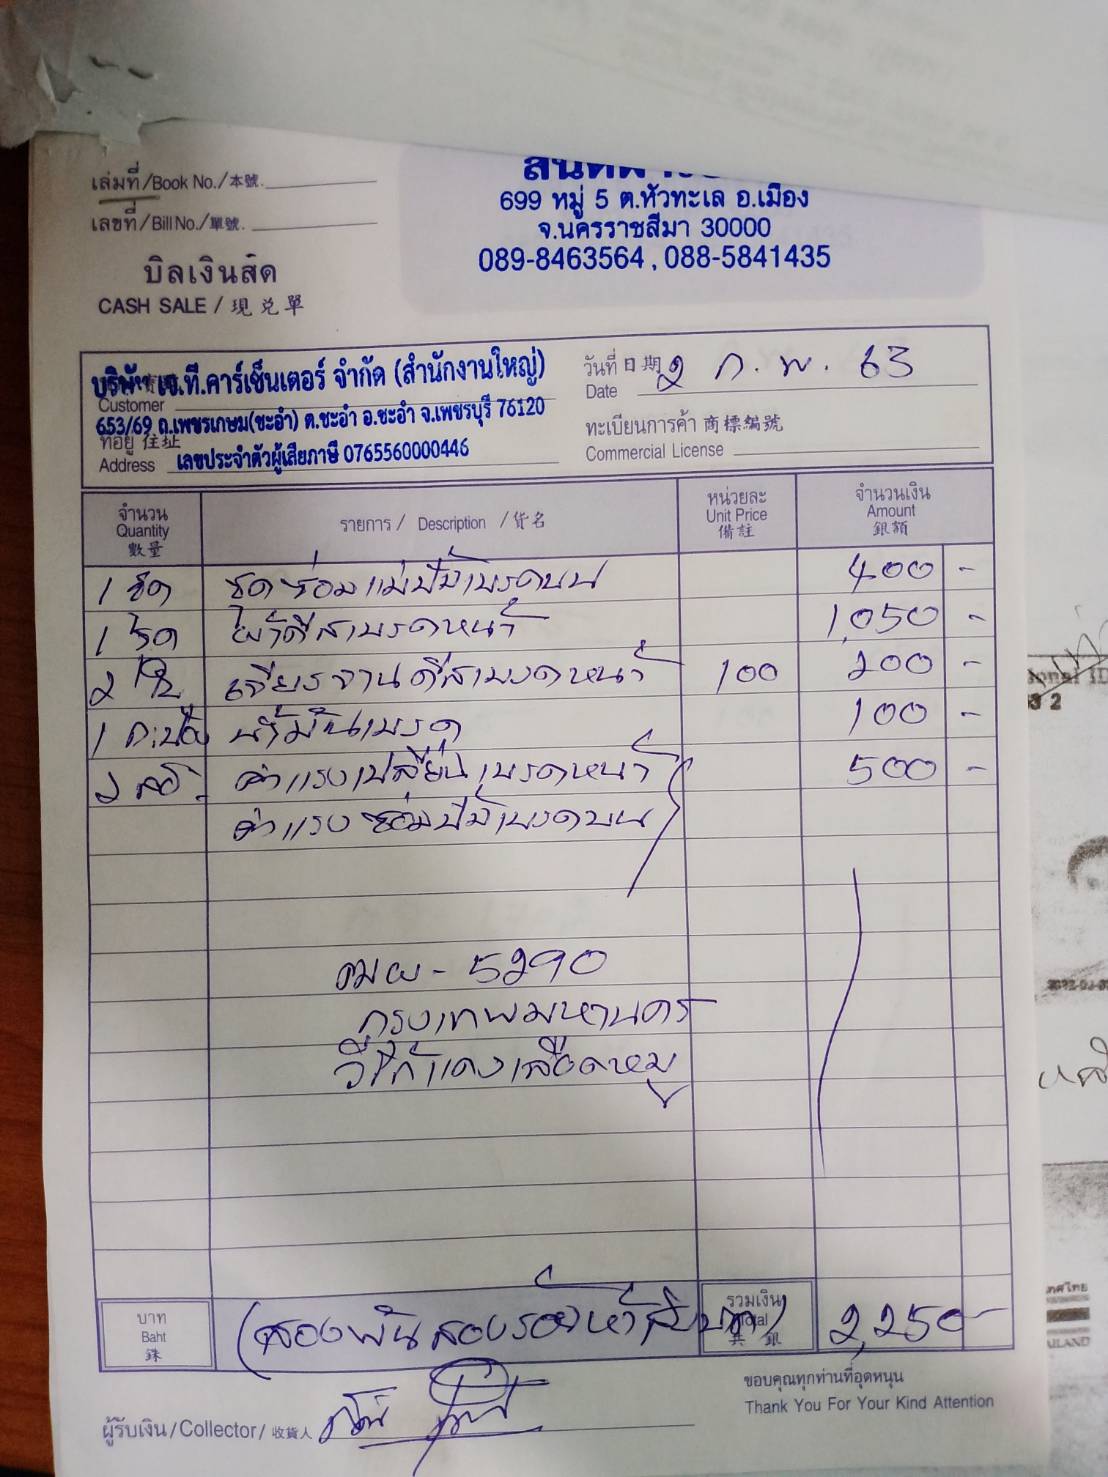 เล่มที่/Book No./本號.
เลขที่/Bill No./單號.
บิลเงินสด
CASH SALE / 現兌單
699 หมู่ 5 ต.หัวทะเล อ.เมือง
จ.นครราชสีมา 30000
089-8463564 , 088-5841435
บริษัท เจ.ที.คาร์เซ็นเตอร์ จำกัด (สำนักงานใหญ่)
Customer
653/69 ถ.เพชรเกษม(ชะอำ) ต.ชะอำ อ.ชะอำ จ.เพชรบุรี 76120
ที่อยู่ 住址
Address เลขประจำตัวผู้เสียภาษี 0765560000446
วันที่ 日期 2 ก.พ. 63
Date
ทะเบียนการค้า 商標編號
Commercial License
จำนวน Quantity 數量 รายการ / Description / 貨名 หน่วยละ Unit Price 備註 จำนวนเงิน Amount 銀額
1 ชุด ชุดซ่อมแม่ปั๊มเบรคบน 400 -
1 ชุด ผ้าดิสเบรคหน้า 1,050 -
2 เจียรจานดิสเบรคหน้า 100 200 -
1 กระป๋อง น้ำมันเบรค 100 -
ค่าแรงเปลี่ยนเบรคหน้า 500 -
ค่าแรงซ่อมปั๊มเบรคบน
5290
กรุงเทพมหานคร
วีโก้แดงเลือดหมู
บาท Baht 銖 (สองพันสองร้อยห้าสิบบาท) รวมเงิน Total 共銀 2,250 -
ขอบคุณทุกท่านที่อุดหนุน
Thank You For Your Kind Attention
ผู้รับเงิน/Collector/收貨人